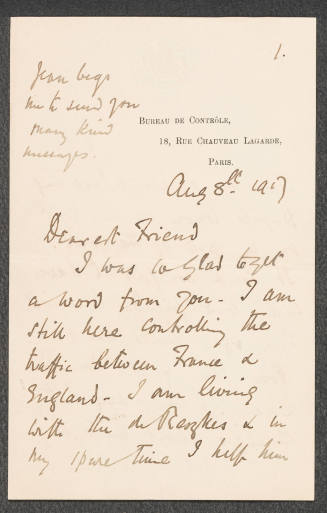 1.
Jean begs
me to send you
many kind
messages.
BUREAU DE CONTRÔLE,
18, RUE CHAUVEAU LAGARDE,
PARIS.
Aug 8th 1917
Dearest Friend
I was so glad to get
a word from you - I am
still here controlling the
traffic between France &
England - I am living
with the de & in
my spare time I help him